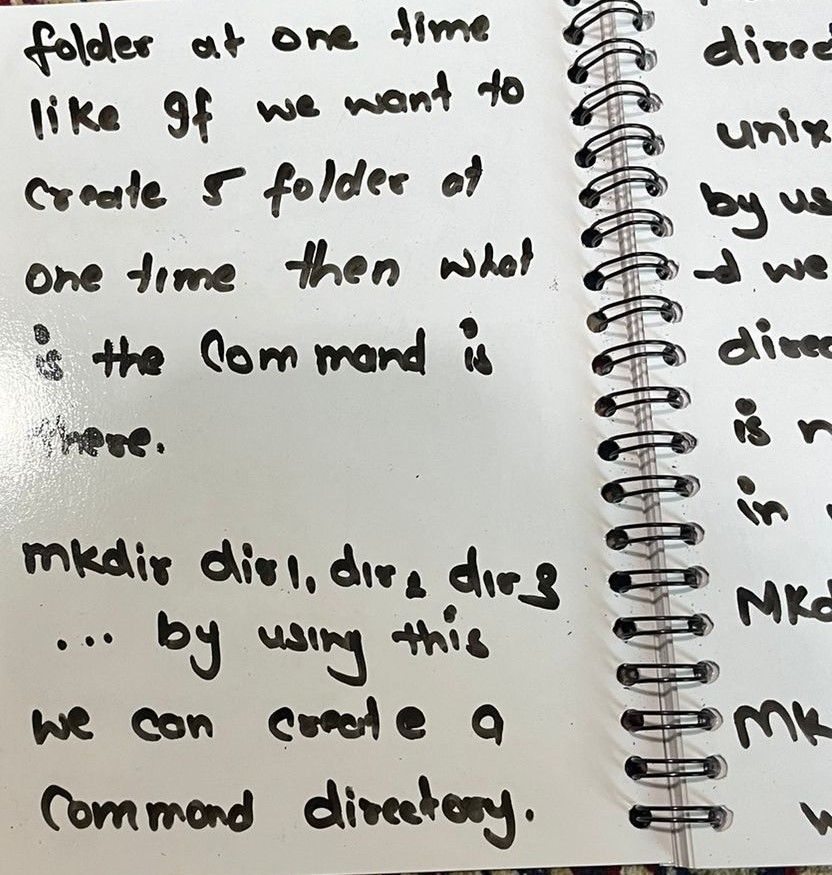 folder at one time
like If we want to
create 5 folder at
one time then what
is the Command is
there.
mkdir dir1, dir2 dir3
... by using this
we can create a
Command directory.
direc
unix
by us
-d we
direc
is n
in
MKd
MK
w